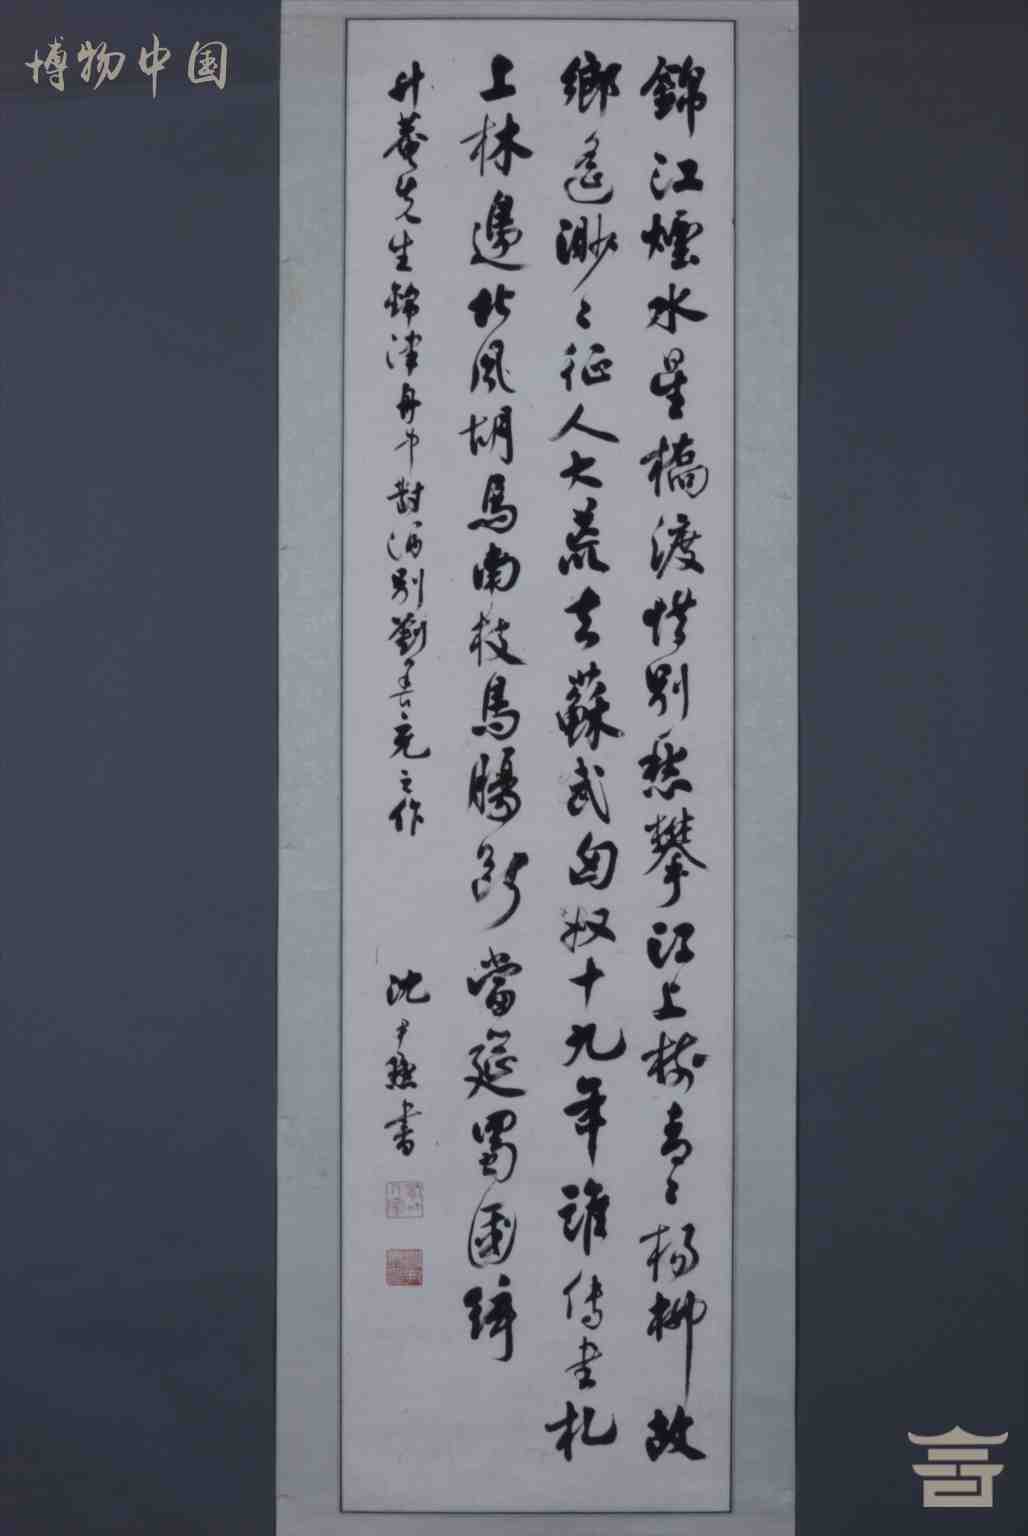 博物中国
錦江煙水星橋渡惜別愁攀江上樹青〻楊柳故
鄉遙渺〻征人大荒去蘇武匈奴十九年誰傳書札
上林邊北風胡馬南枝鳥腸斷當筵蜀國絃
升菴先生錦津舟中對酒別劉善充之作
沈尹默書